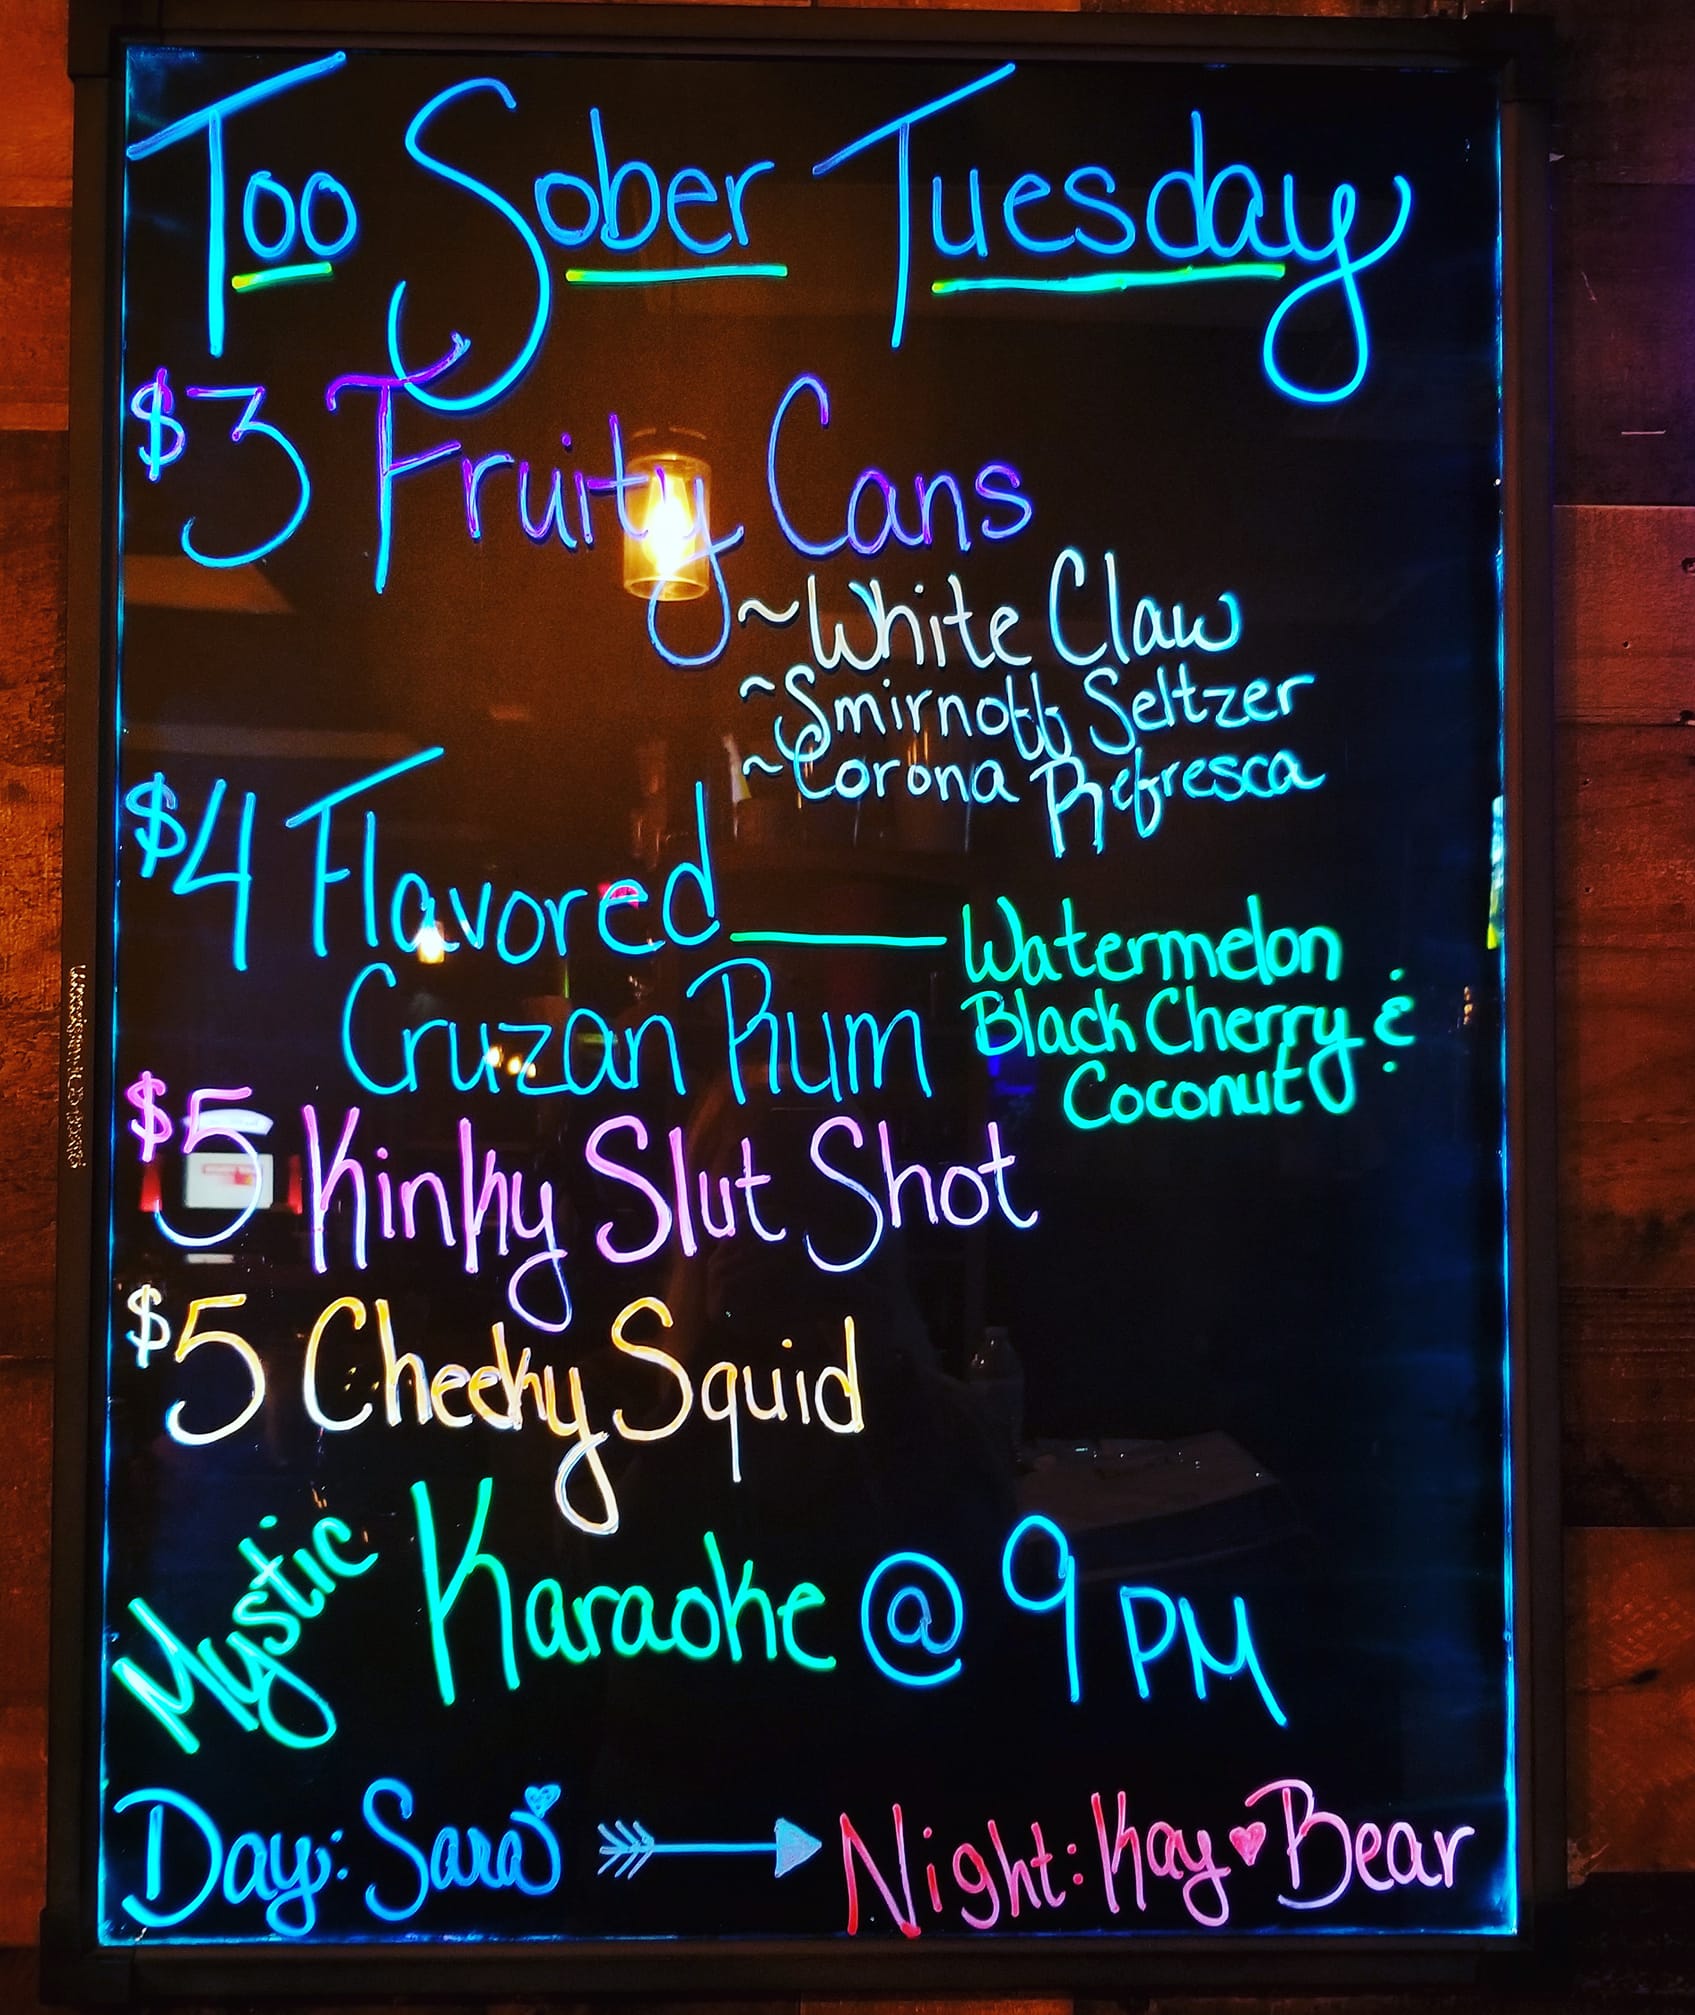 Too Sober Tuesday
$3 Fruity Cans
~White Claw
~Smirnoff Seltzer
~Corona Refresca
$4 Flavored
Cruzan Rum
Watermelon
Black Cherry &
Coconut
$5 Kinky Slut Shot
$5 Cheeky Squid
Mystic Karaoke @ 9 PM
Day: Sara
Night: Kay Bear